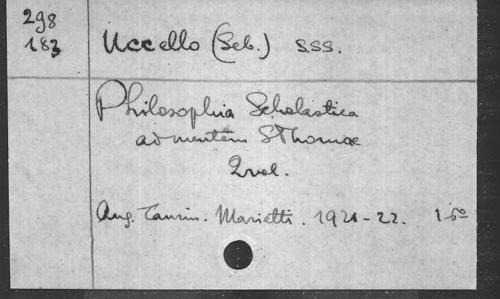 298
183
Uccello (Seb.) S.S.S.
Philosophia Scholastica
ad mentem S Thomae
2 vol.
Aug. Taurin. Marietti. 1921-22. 16°